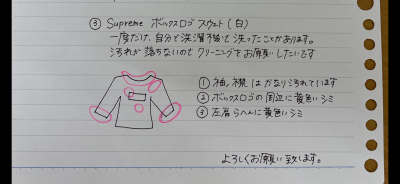 ③ Supreme ボックスロゴ スウェット (白)
一度だけ、自分で洗濯手洗いで洗ったことがあります。
汚れが落ちないので クリーニングをお願いしたいです
① 袖、襟 はかなり汚れています
② ボックスロゴの周辺に黄色いシミ
③ 左肩らへんに黄色いシミ
よろしくお願い致します。